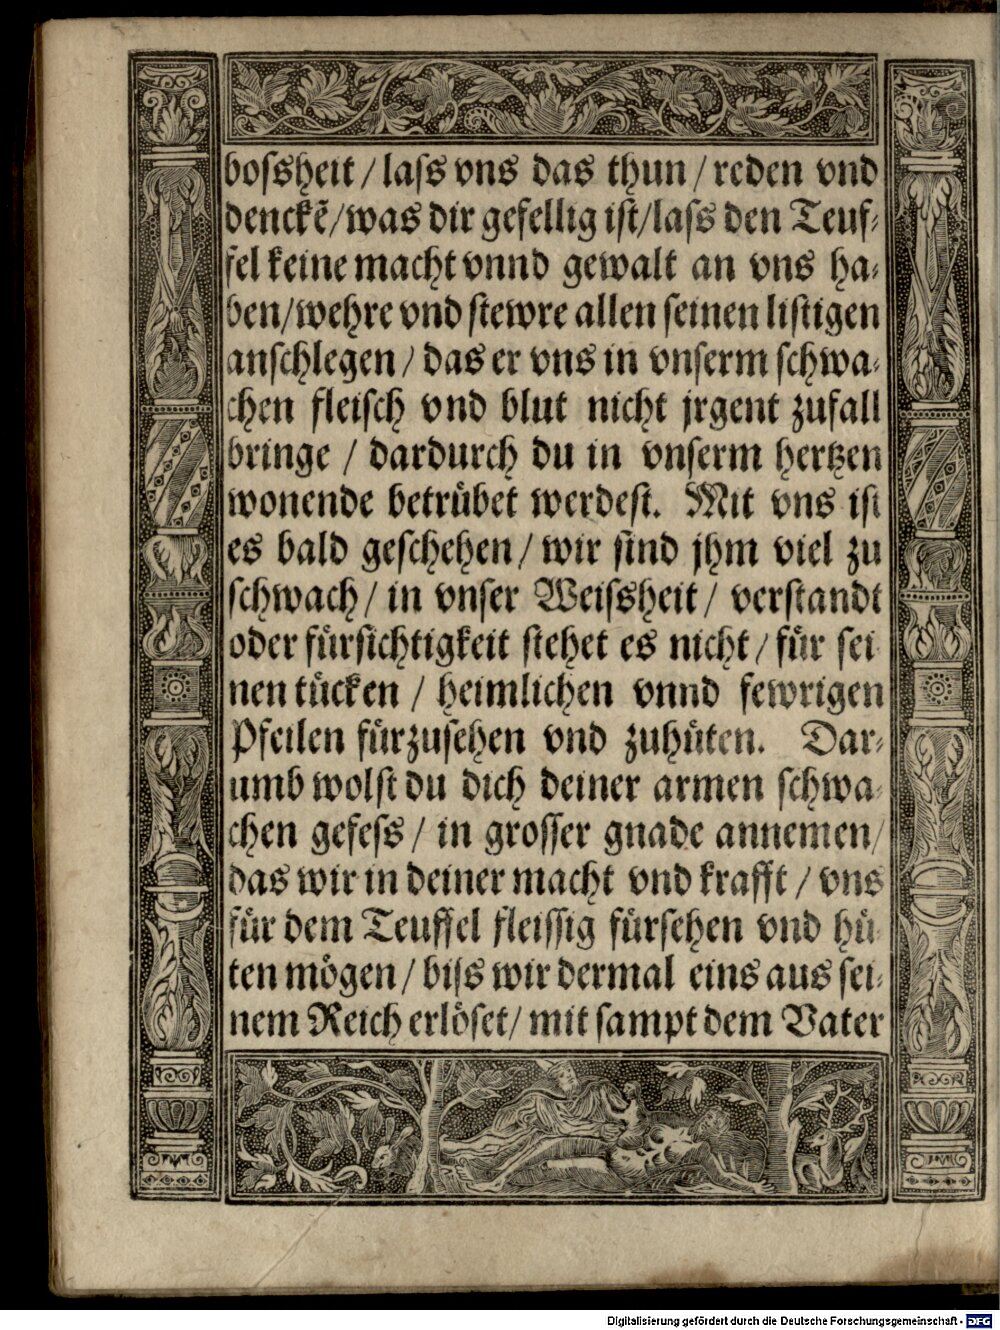 bosſheit / laſs vns das thun / reden vnd
denckẽ / was dir gefellig iſt / laſs den Teuf⸗
fel keine macht vnnd gewalt an vns ha⸗
ben / wehre vnd ſtewre allen ſeinen liſtigen
anſchlegen / das er vns in vnſerm ſchwa⸗
chen fleiſch vnd blut nicht jrgent zufall
bringe / dardurch du in vnſerm hertzen
wonende betrübet werdeſt. Mit vns iſt
es bald geſchehen / wir ſind jhm viel zu
ſchwach / in vnſer Weiſsheit / verſtandt
oder fürſichtigkeit ſtehet es nicht / für ſei⸗
nen tücken / heimlichen vnnd fewrigen
Pfeilen fürzuſehen vnd zuhüten. Dar⸗
umb wolſt du dich deiner armen ſchwa⸗
chen gefeſs / in groſſer gnade annemen /
das wir in deiner macht vnd krafft / vns
für dem Teuffel fleiſſig fürſehen vnd hü⸗
ten mögen / biſs wir dermal eins aus ſei⸗
nem Reich erlöſet / mit ſampt dem Vater
Digitalisierung gefördert durch die Deutsche Forschungsgemeinschaft - DFG